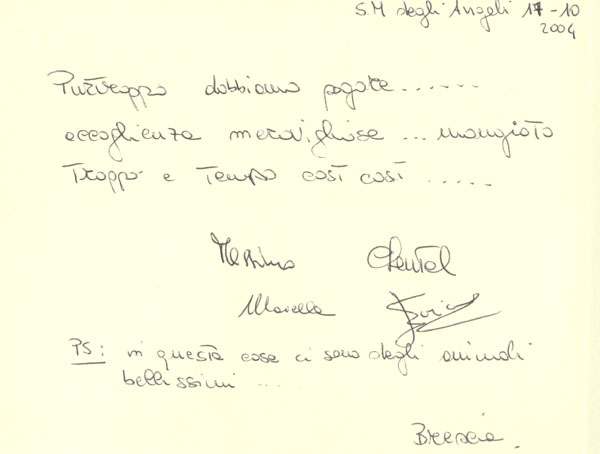 S.M degli Angeli 17-10
2004
Purtroppo dobbiamo pagare......
accoglienza meravigliosa ... mangiato
troppo e tempo così così .....
Massimo Chantal
Marcella
PS: in questa casa ci sono degli animali
bellissimi ...
Brescia.